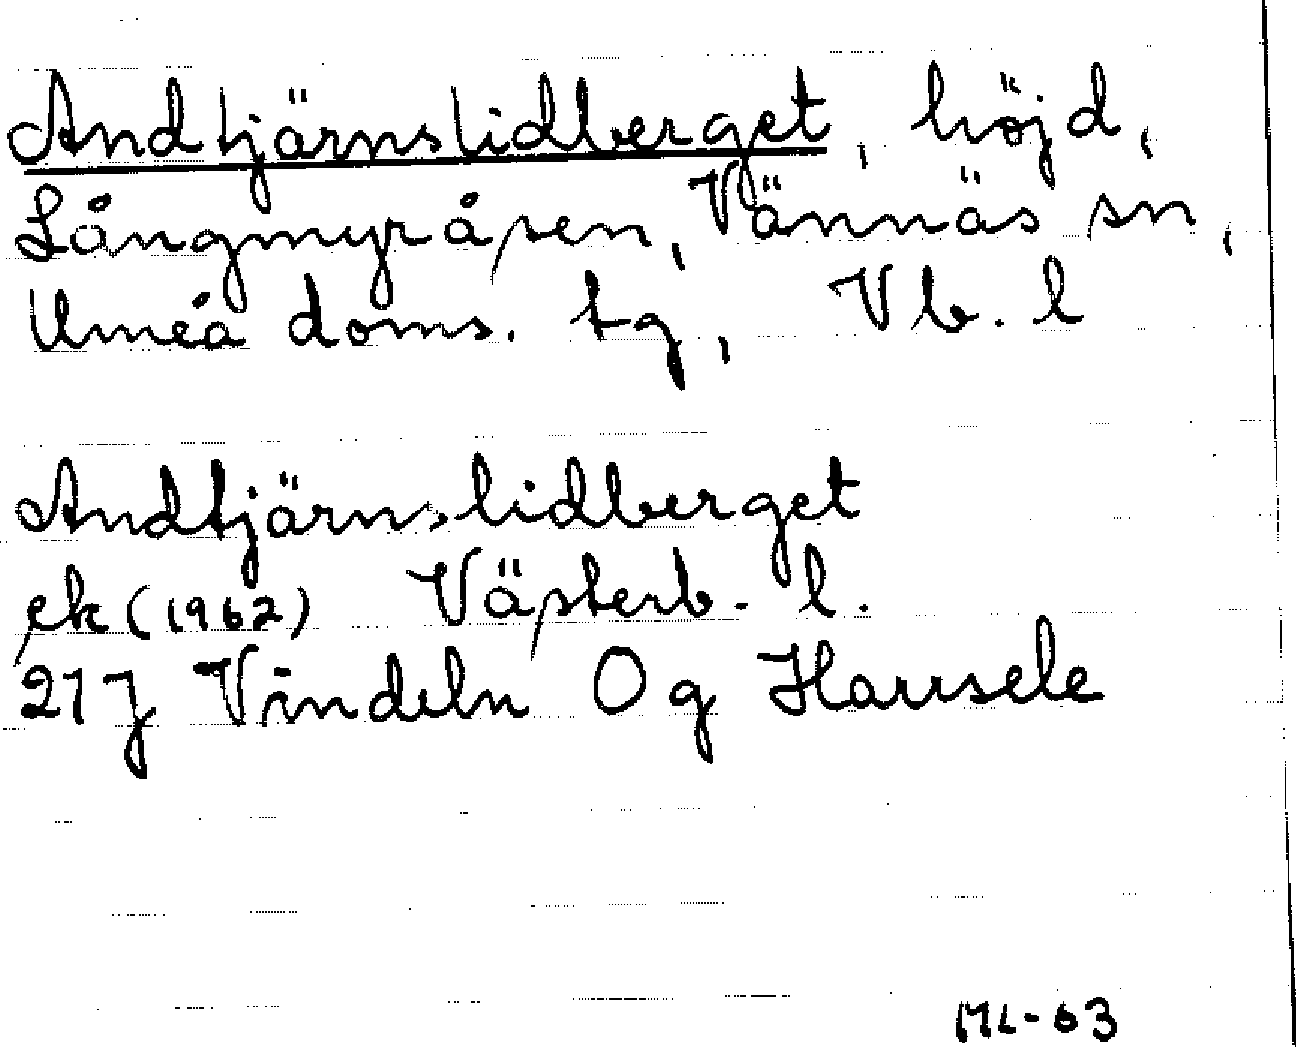 Andtjärnslidberget, höjd,
Långmyråsen, Vännäs sn,
Umeå doms. tg, Vb. l
Andtjärnslidberget
ek (1962) Västerb. l.
21J Vindeln 0g Harrsele
ML-63